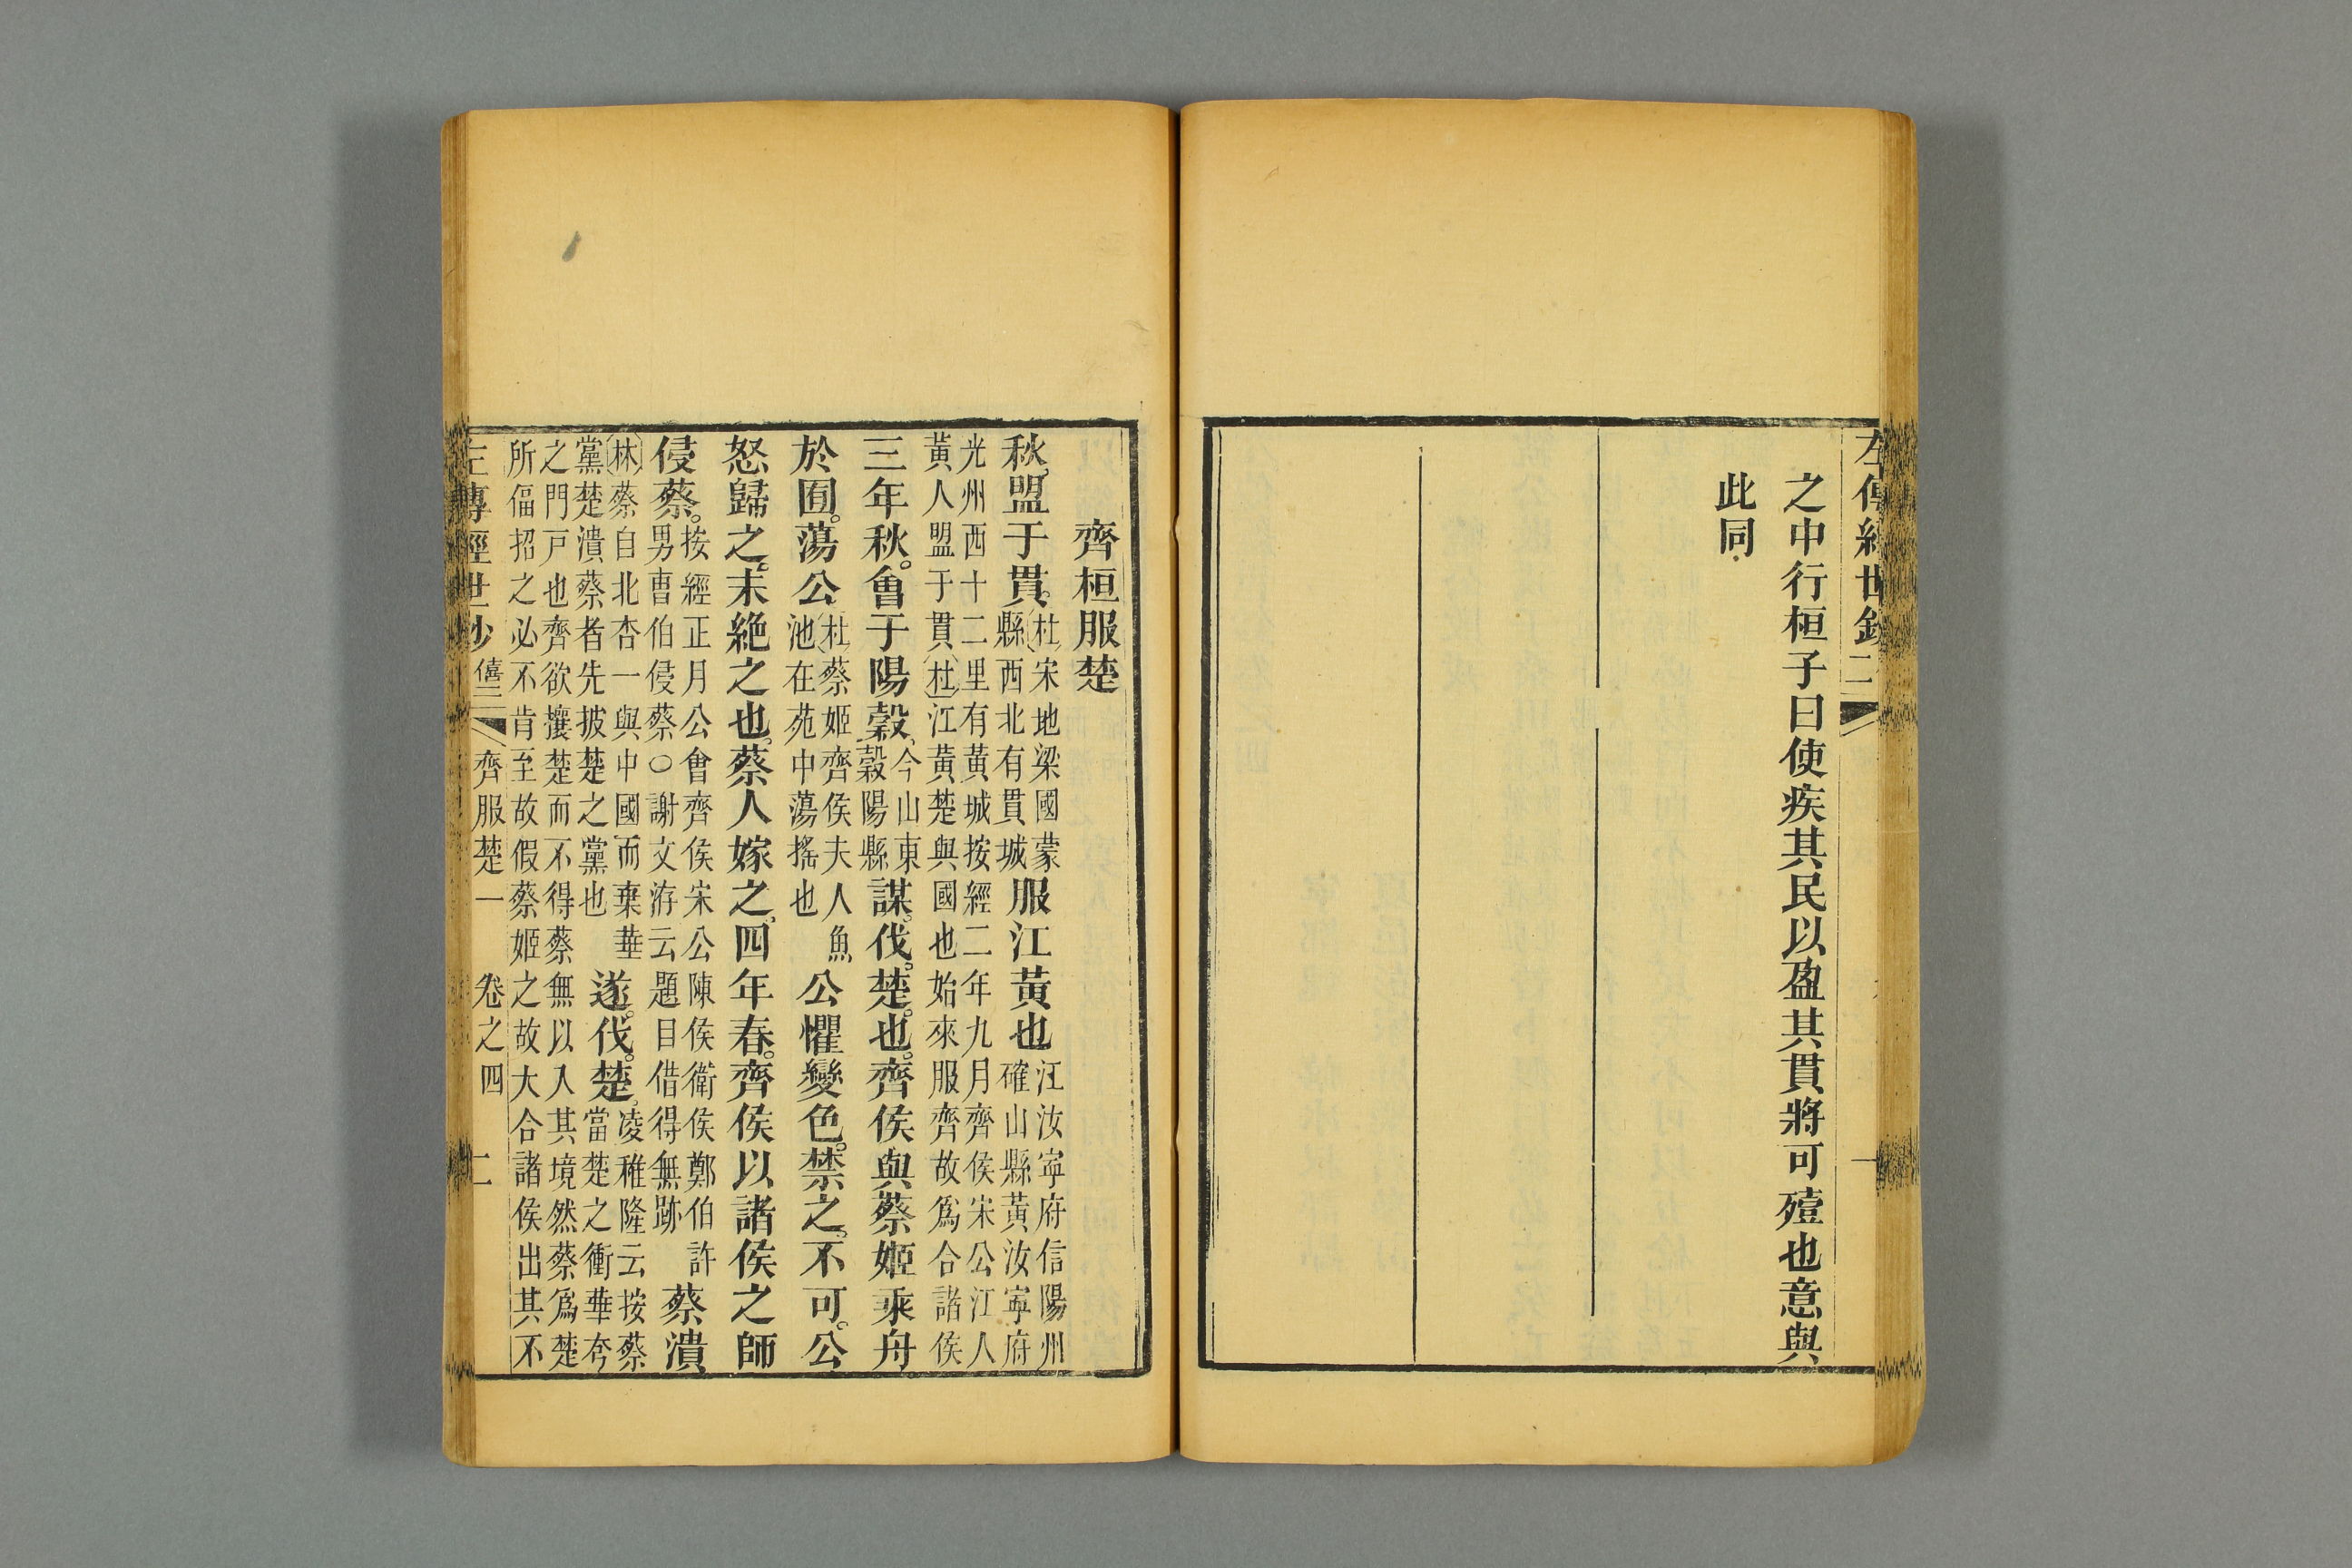 左傳經世鈔二
之中行桓子曰使疾其民以盈其貫將可殪也意與
此同
齊桓服楚
秋盟于貫杜宋地梁國蒙縣西北有貫城服江黃也江汝寧府信陽州確山縣黃汝寧府
光州西十二里有黃城按經二年九月齊侯宋公江人
黃人盟于貫杜江黃楚與國也始來服齊故爲合諸侯
三年秋會于陽穀今山東穀陽縣謀伐楚也齊侯與蔡姬乘舟
於囿蕩公杜蔡姬齊侯夫人魚池在苑中蕩搖也公懼變色禁之不可公
怒歸之未絶之也蔡人嫁之四年春齊侯以諸侯之師
侵蔡按經正月公會齊侯宋公陳侯衛侯鄭伯許男曹伯侵蔡○謝文洊云題目借得無跡蔡潰
林蔡自北杏一與中國而棄華黨楚潰蔡者先披楚之黨也遂伐楚凌稚隆云按蔡當楚之衝華夸
之門戸也齊欲攘楚而不得蔡無以入其境然蔡爲楚
所偪招之必不肯至故假蔡姬之故大合諸侯出其不
左傳經世鈔 僖二 齊服楚一 卷之四 二